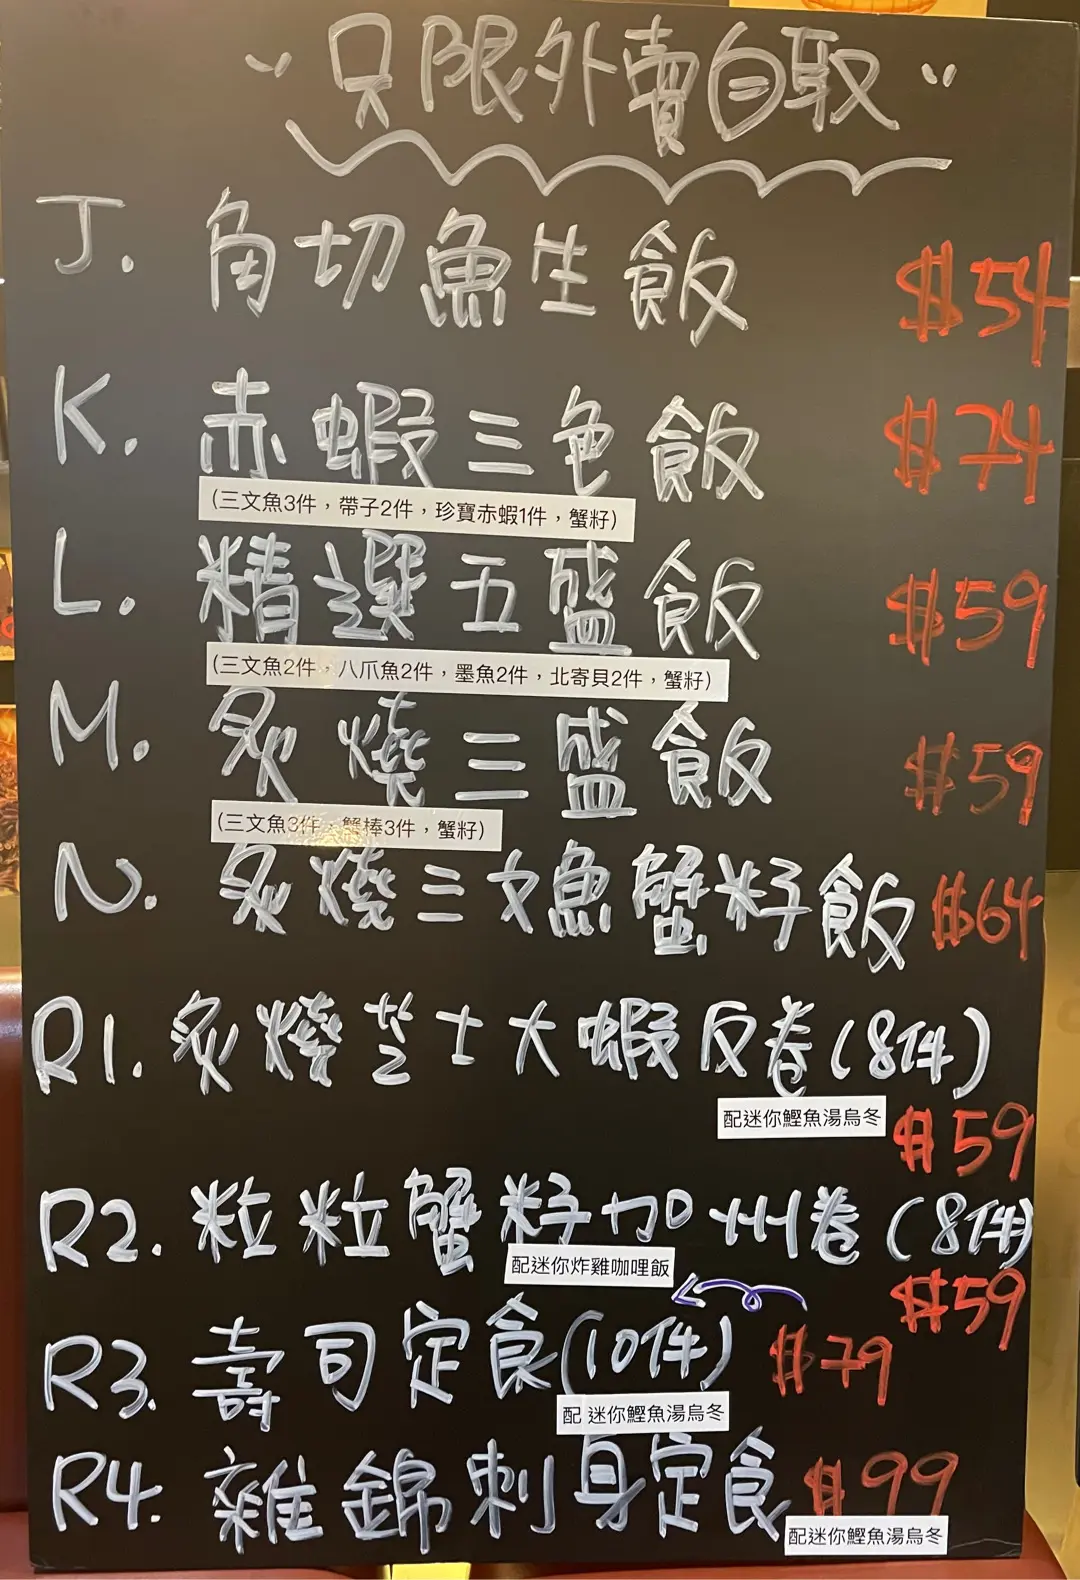 "只限外賣自取"
J. 角切魚生飯 $54
K. 赤蝦三色飯 $74
(三文魚3件，帶子2件，珍寶赤蝦1件，蟹籽)
L. 精選五盛飯 $59
(三文魚2件，八爪魚2件，墨魚2件，北寄貝2件，蟹籽)
M. 炙燒三盛飯 $59
(三文魚3件，蟹棒3件，蟹籽)
N. 炙燒三文魚蟹籽飯 $64
R1. 炙燒芝士大蝦反卷(8件)
配迷你鰹魚湯烏冬 $59
R2. 粒粒蟹籽加州卷(8件)
配迷你炸雞咖哩飯 $59
R3. 壽司定食(10件) $79
配 迷你鰹魚湯烏冬
R4. 雜錦刺身定食 $99
配迷你鰹魚湯烏冬